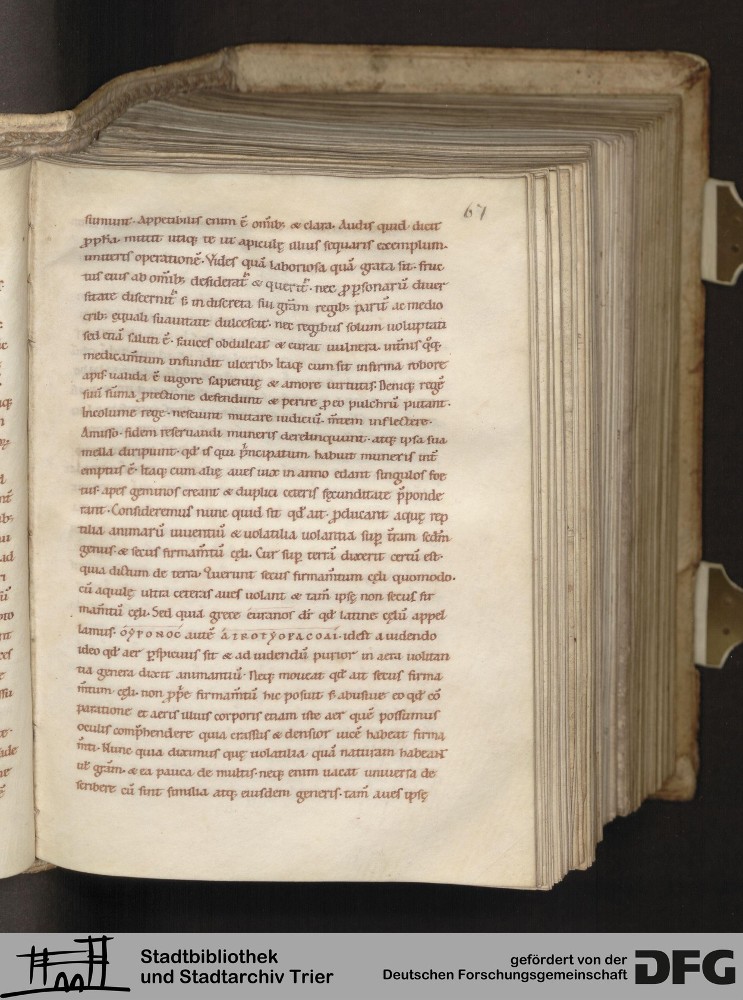 67
sumunt. Appetibilis enim ē omībꝫ & clara. Audis quid dicit
ꝓpħa. mittit utiq; te ut apiculę illius sequaris exemplum.
imiteris operationē. Vides quā laboriosa quā grata sit. fruc
tus eius ab omībꝫ desideratᷣ & queritᷣ. nec ꝓ ꝑsonarū diuer
sitate discernitᷣ. sꝫ indiscreta sui grām regibꝫ parit ac medio
cribꝫ equali suauitate dulcescit. nec regibus solum uoluptati
sed etiā saluti ē. fauces obdulcat & curat uulnera. intnis qꝫqꝫ
medicam̄tum infundit ulceribꝫ. Itaq; cum sit infirma robore
apis. ualida ē uigore sapientię & amore uirtutis. Deniq; regē
suū sūma ꝓtectione defendunt & perire ꝓ eo pulchrū putant.
Incolume rege. nesciunt mutare iudiciū. m̄tem inflectere.
Amisso. fidem reseruandi muneris derelinquunt. atq; ipsa sua
mella diripiunt. qđ is qui pͥncipatum habuit muneris int̄
emptus ē. Itaq; cum alię aues uix in anno edant singulos foe
tus. apes geminos creant & duplici ceteris fęcunditate p̄ponde
rant. Consideremus nunc quid sit qđ ait. ꝓducant aquę rep
tilia animarū uiuentiū & uolatilia uolantia suꝑ t̄ram scđm
genus. & secus firmam̄tū cęli. Cur suꝑ terrā dixerit certū est.
quia dictum de terra. Querunt secus firmam̄tum cęli quomodo.
cū aquilę ultra ceteras aues uolant & tam̄ ipsę non secus fir
mam̄tū cęli. Sed quia grece euranos dr̄ qđ latine cęlū appel
lamus. ΟΥΡΟΝΟC autē ἀΙΡΟΤΥΟΡΑCΟΑΙ. idest a uidendo
ideo qđ aer ꝑspicuus sit & ad uidendū purior in aera uolitan
tia genera dixit animantiū. Neq; moueat qđ ait secus firma
m̄tum cęli. non ꝓpͥe firmam̄tū hic posuit sꝫ abusiue eo qđ cō
paratione et aeris illius corporis etiam iste aer quē possumus
oculis comp̄hendere quia crassius & densior uicē habeat firma
m̄ti. Nunc quia diximus quę uolatilia quā naturam habeant
uł grām. & ea pauca de multis. neq; enim uacat uniuersa de
scribere cū sint similia atq; eiusdem generis. tam̄ aues ipsę
Stadtbibliothek
und Stadtarchiv Trier
gefördert von der
Deutschen Forschungsgemeinschaft
DFG